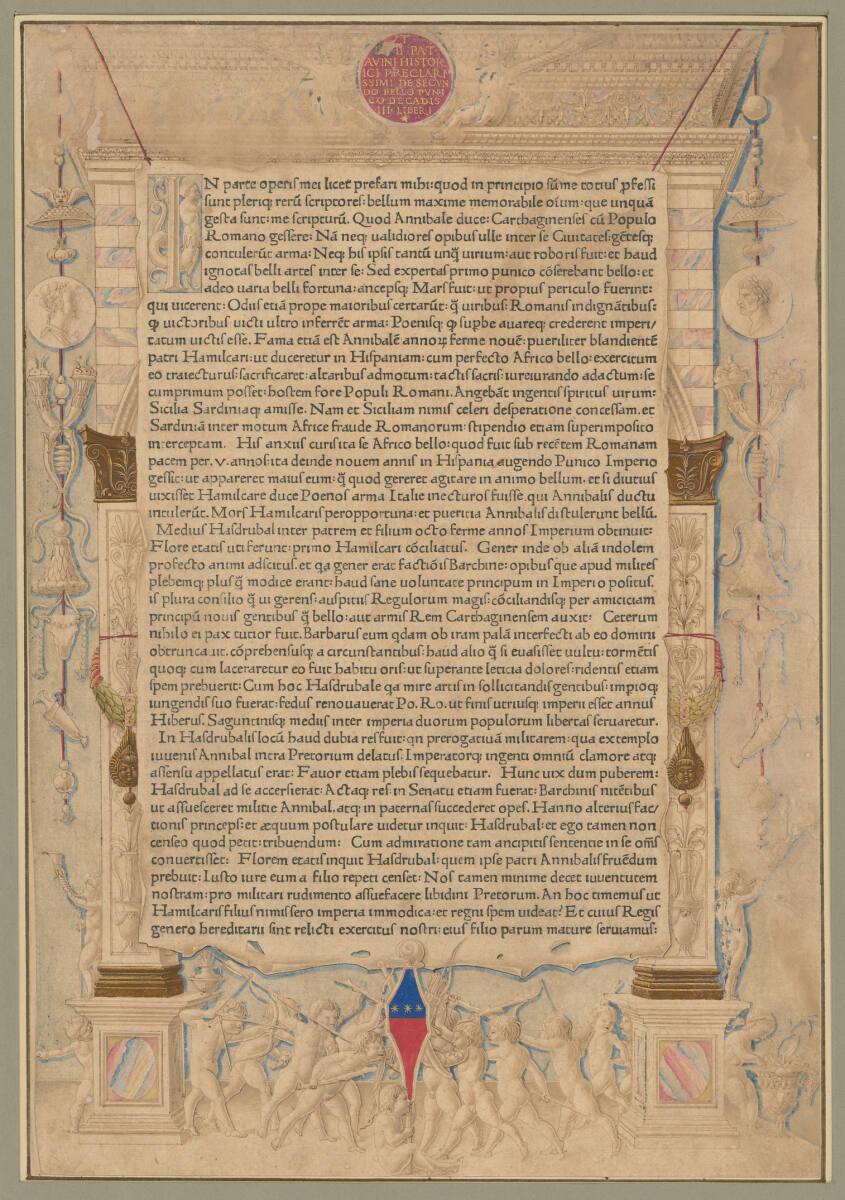 T
LI PAT
AVINI HISTOR
ICI PRECLARI
SSIMI DE SECVN
DO BELLO PVNI
CO DECADIS
III LIBER I
IN parte operis mei licet prefari mihi: quod in principio sũme totius ꝓfessi
sunt pleriqꝫ rerũ scriptores: bellum maxime memorabile oĩum: que unquã
gesta sunt: me scripturũ. Quod Annibale duce: Carthaginenses cũ Populo
Romano gessere: Nã neqꝫ ualidiores opibus ulle inter se Ciuitates: gẽtesqꝫ
contulerũt arma: Neqꝫ his ipsis tantũ unq̃ uirium: aut roboris fuit: et haud
ignotas belli artes inter se: Sed expertas primo punico cõserebant bello: et
adeo uaria belli fortuna: ancepsqꝫ Mars fuit: ut propius periculo fuerint:
qui uicerent: Odiis etiã prope maioribus certarũt: q̃ uiribus: Romanis indignãtibus:
ꝙ uictoribus uicti ultro inferrẽt arma: Poenisqꝫ ꝙ supbe auareqꝫ crederent imperi/
tatum uictis esse. Fama etiã est Annibalẽ annoꝝ ferme nouẽ: pueriliter blandientẽ
patri Hamilcari: ut duceretur in Hispaniam: cum perfecto Africo bello: exercitum
eo traiecturus: sacrificaret: altaribus admotum: tactis sacris: iureiurando adactum: se
cumprimum posset: hostem fore Populi Romani. Angebãt ingentis spiritus uirum:
Sicilia Sardiniaqꝫ amisse. Nam et Siciliam nimis celeri desperatione concessam. et
Sardiniã inter motum Africe fraude Romanorum: stipendio etiam superimposito
interceptam. His anxius curis ita se Africo bello: quod fuit sub recẽtem Romanam
pacem per. v. annos: ita deinde nouem annis in Hispania augendo Punico Imperio
gessit: ut appareret maius eum: q̃ quod gereret agitare in animo bellum. et si diutius
uixisset Hamilcare duce Poenos arma Italie inecturos fuisse. qui Annibalis ductu
intulerũt. Mors Hamilcaris peropportuna: et pueritia Annibalis distulerunt bellũ.
Medius Hasdrubal inter patrem et filium octo ferme annos Imperium obtinuit:
Flore etatis uti ferunt: primo Hamilcari cõciliatus. Gener inde ob aliã indolem
profecto animi adscitus. et qa gener erat factiõis Barchine: opibus que apud milites
plebemqꝫ plus q̃ modice erant: haud sane uoluntate principum in Imperio positus.
is plura consilio q̃ ui gerens: auspitiis Regulorum magis: cõciliandisqꝫ per amicitiam
principũ nouis gentibus q̃ bello: aut armis Rem Carthaginensem auxit: Ceterum
nihilo ei pax tutior fuit. Barbarus eum qdam ob iram palã interfecti ab eo domini
obtruncauit. cõprehensusqꝫ a circunstantibus: haud alio q̃ si euasisset uultu: tormẽtis
quoqꝫ cum laceraretur eo fuit habitu oris: ut superante leticia dolores: ridentis etiam
spem prebuerit: Cum hoc Hasdrubale qa mire artis in sollicitandis gentibus: impioqꝫ
iungendis suo fuerat: fedus renouauerat Po. Ro. ut finis utriusqꝫ imperii esset annus
Hiberus. Saguntinisqꝫ mediis inter imperia duorum populorum libertas seruaretur.
In Hasdrubalis locũ haud dubia res fuit: qn prerogatiuã militarem: qua extemplo
iuuenis Annibal intra Pretorium delatus: Imperatorqꝫ ingenti omniũ clamore atqꝫ
assensu appellatus erat: Fauor etiam plebis sequebatur. Hunc uix dum puberem:
Hasdrubal ad se accersierat: Actaqꝫ res in Senatu etiam fuerat: Barchinis nitẽtibus
ut assuesceret militie Annibal. atqꝫ in paternas succederet opes. Hanno alterius fac/
tionis princeps: et æquum postulare uidetur inquit: Hasdrubal: et ego tamen non
censeo quod petit: tribuendum: Cum admiratione tam ancipitis sententie in se om̃s
conuertisset: Florem etatis inquit Hasdrubal: quem ipse patri Annibalis fruẽdum
prebuit: Iusto iure eum a filio repeti censet: Nos tamen minime decet iuuentutem
nostram: pro militari rudimento assuefacere libidini Pretorum. An hoc timemus ut
Hamilcaris filius nimis sero imperia immodica: et regni spem uideat? Et cuius Regis
genero hereditarii sint relicti exercitus nostri: eius filio parum mature seruiamus: